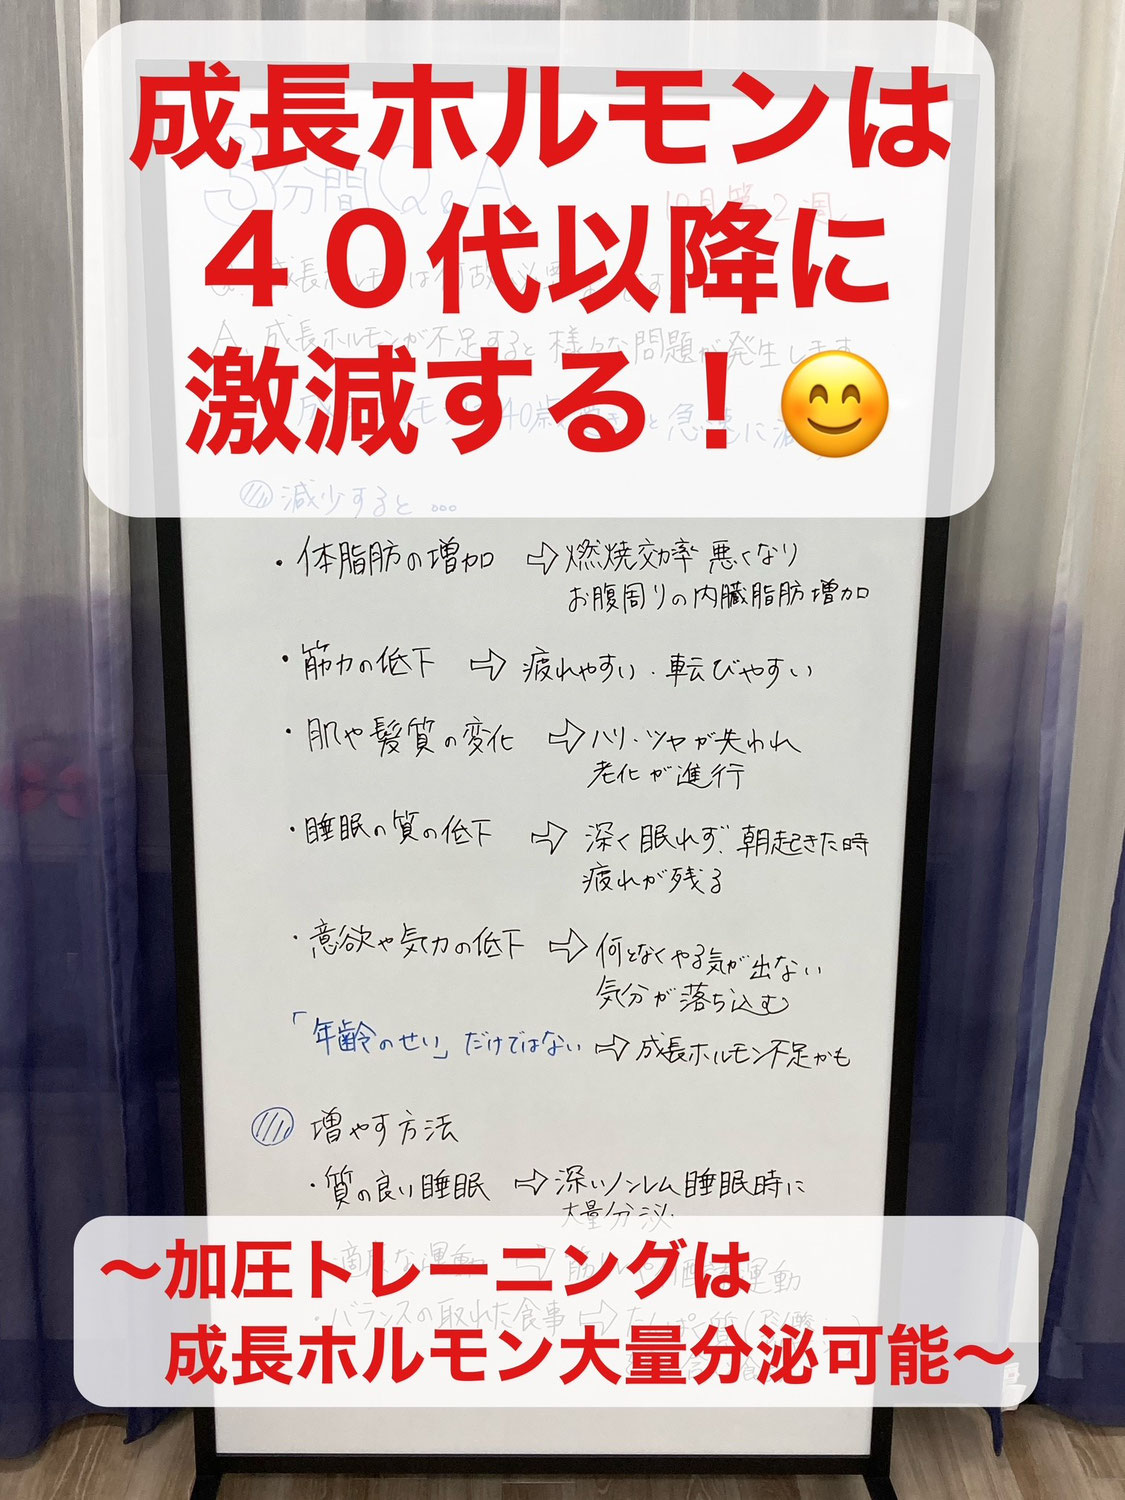 成長ホルモンは
４０代以降に
激減する！😊
3分間Q&A
10月第2週
A. 成長ホルモンが不足すると様々な問題が発生します
減少すると…
・体脂肪の増加 ⇨ 燃焼効率悪くなり
お腹周りの内臓脂肪増加
・筋力の低下 ⇨ 疲れやすい・転びやすい
・肌や髪質の変化 ⇨ ハリ・ツヤが失われ
老化が進行
・睡眠の質の低下 ⇨ 深く眠れず、朝起きた時
疲れが残る
・意欲や気力の低下 ⇨ 何となくやる気が出ない
気分が落ち込む
「年齢のせい」だけではない ⇨ 成長ホルモン不足かも
増やす方法
・質の良い睡眠 ⇨ 深いノンレム睡眠時に
大量分泌
〜加圧トレーニングは
成長ホルモン大量分泌可能〜
適度な運動 ⇨ 運動
・バランスの取れた食事 ⇨ たんぱく質